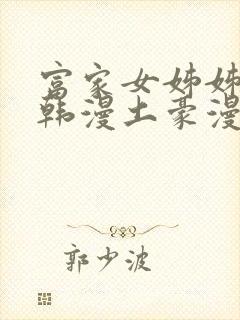 富家女姊姊
韩漫土豪漫
郭少波